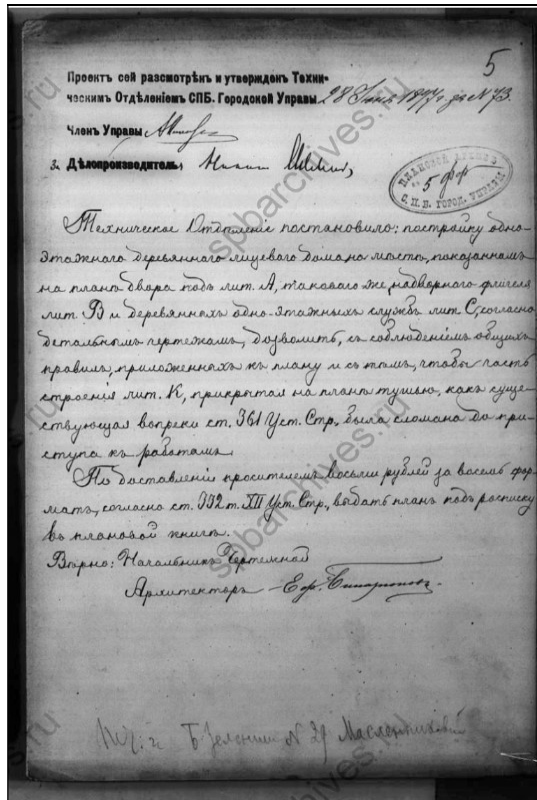 5
Проектъ сей разсмотрѣнъ и утвержденъ Техни-
ческимъ Отдѣленіемъ СПБ. Городской Управы 28 1877 г. за № 73.
Членъ Управы
3. Дѣлопроизводитель,
ПЛАНОВОЙ АРХИВЪ
5 фф
С.П.Б. ГОРОД. УПРАВЫ
Техническое Отдѣленіе постановило: постройку одно-
этажнаго деревяннаго лицеваго дома на мѣстѣ, показанномъ
на планѣ двора подъ лит. А, таковаго же, надворнаго флигеля
лит. В и деревянныхъ одно-этажныхъ службъ лит. С, согласно
детальнымъ чертежамъ, дозволить, съ соблюденіемъ общихъ
правилъ, приложенныхъ къ плану и съ тѣмъ, чтобы часть
строенія лит. К, прикрытая на планѣ тушью, какъ суще-
ствующая вопреки ст. 361 Уст. Стр., была сломана до при-
ступа къ работамъ.
По доставленіи просителемъ восьми рублей за восемь фор-
матъ, согласно ст. 332 т. XII Уст. Стр., выдать планъ подъ росписку
въ плановой книгѣ.
Вѣрно: Начальникъ Чертежной
Архитекторъ
Б Зеленина № 29
spbarchives.ru
spbarchives.ru
spbarchives.ru